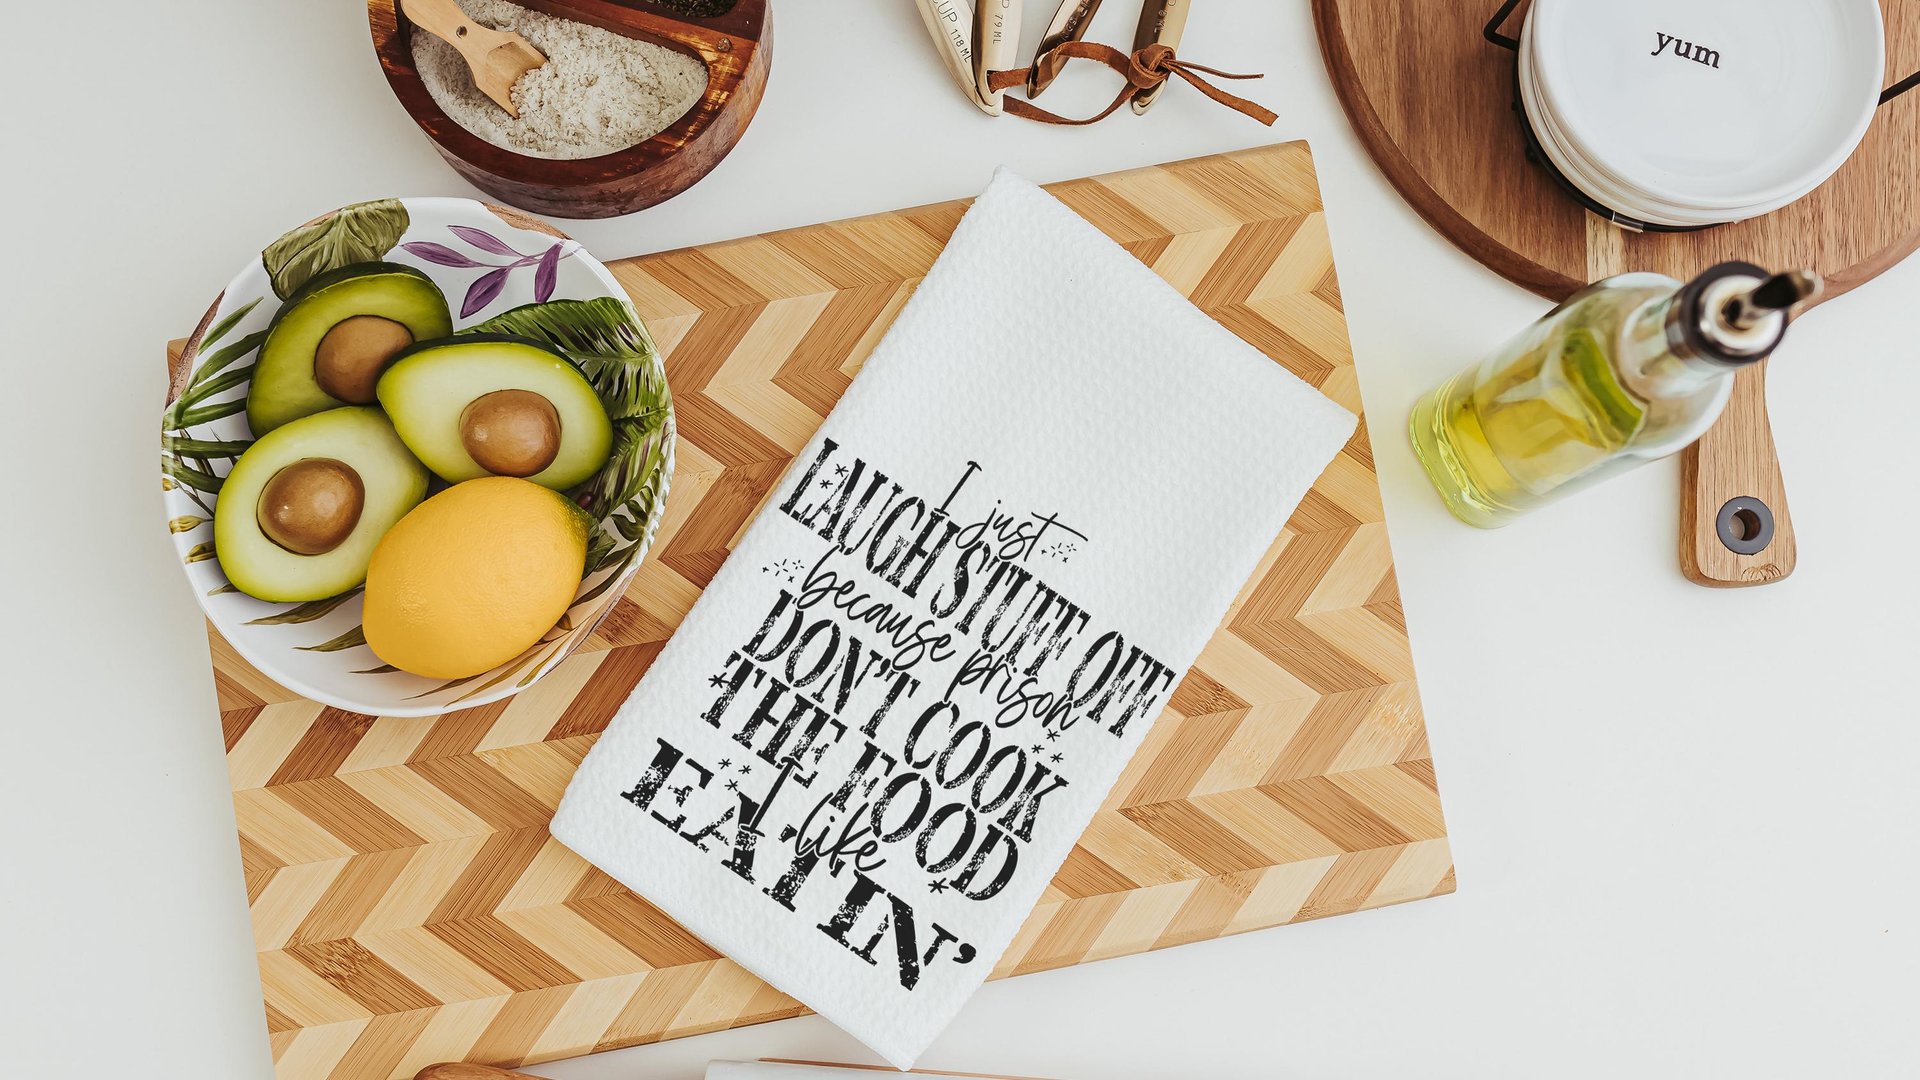 CUP 118 ML
79 ML
yum
I just
LAUGH STUFF OFF
because prison
DON'T COOK
THE FOOD
I like
EATIN'